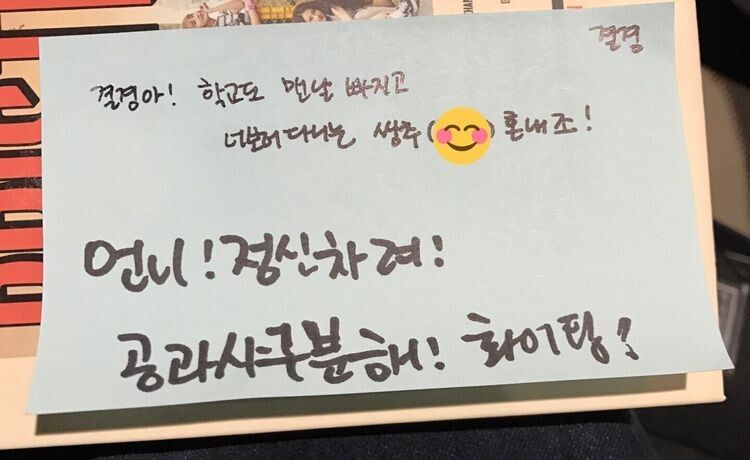 결경
결경아! 학교도 맨날 빠지고
너보러다니는 쌍주( )혼내조!
언니!정신차려!
공과사구분해! 화이팅!